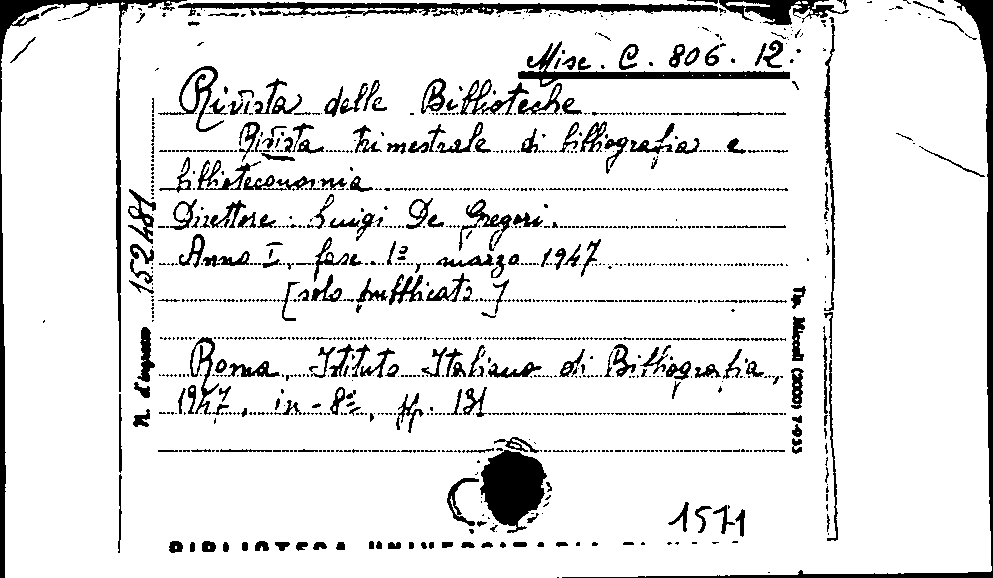 Misc. C. 806. 12.
Rivista delle Biblioteche
Rivista trimestrale di bibliografia e
biblioteconomia.
Direttore: Luigi De Gregori.
Anno I, fasc. 1º, marzo 1947.
[solo pubblicato]
Roma, Istituto Italiano di Bibliografia,
1947, in-8º, pp. 131
N. d'ingresso 152481
Tip. Miccoli (2000) 7-933
1571
BIBLIOTECA UNIVERSITARIA DI